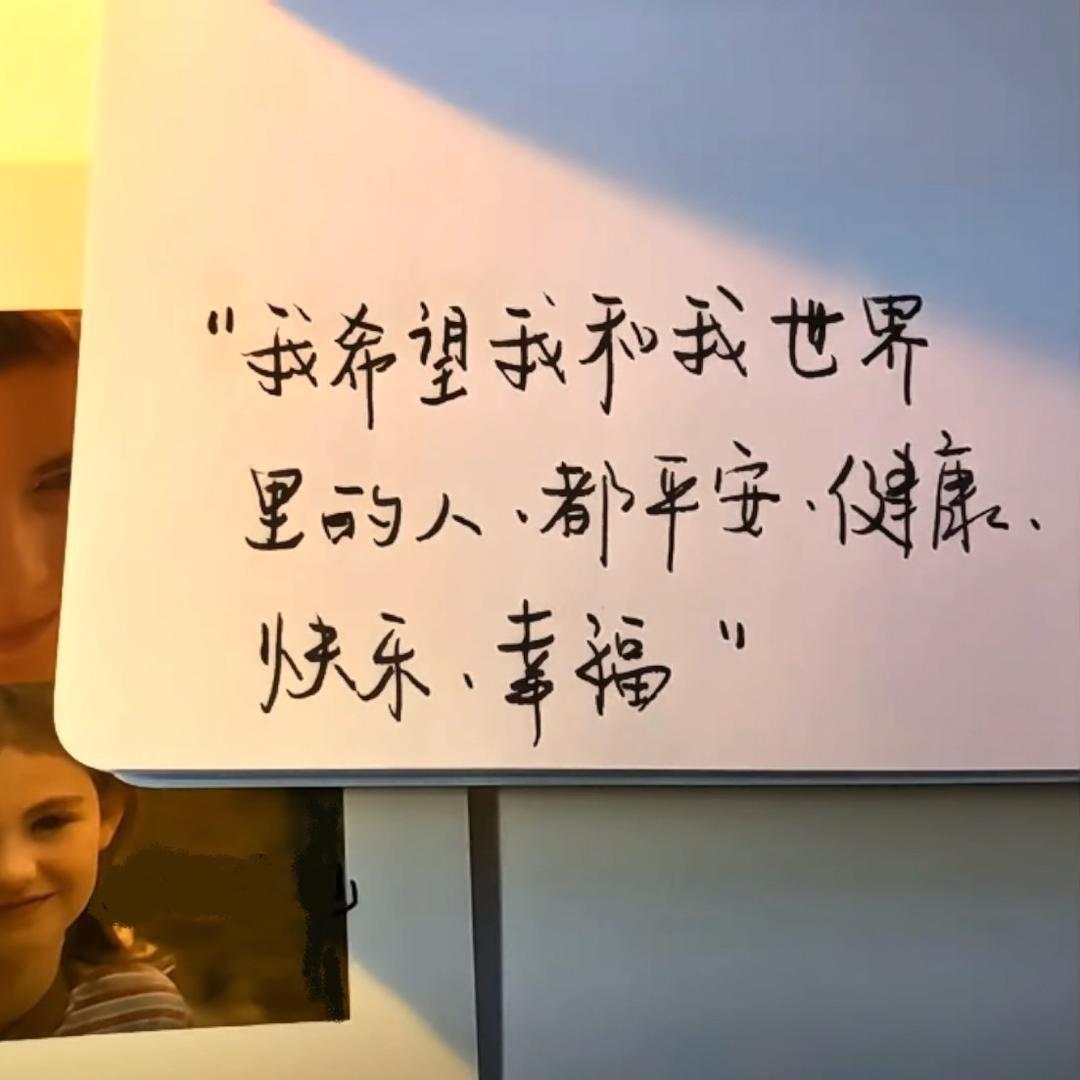 "我希望我和我世界
里的人、都平安、健康、
快乐、幸福"